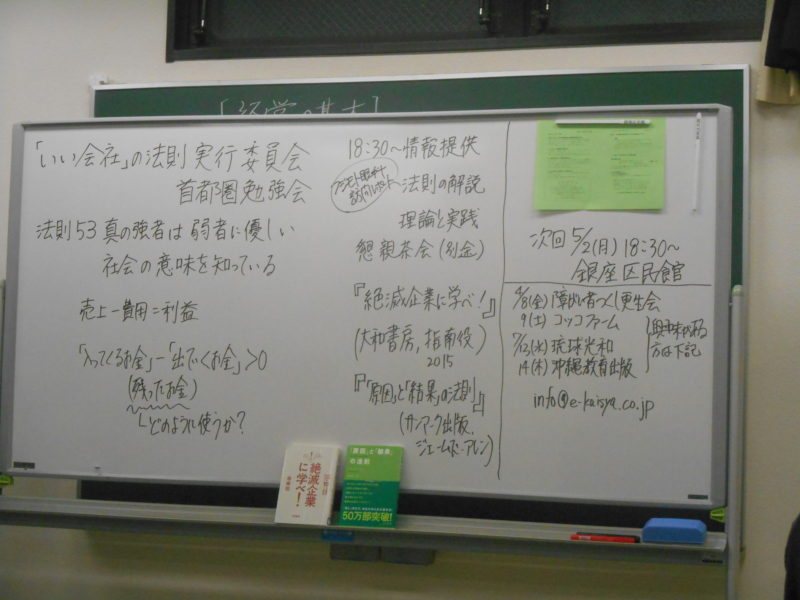 「経営の基本」
「いい会社」の法則実行委員会
首都圏勉強会
法則53 真の強者は弱者に優しい
社会の意味を知っている
売上ー費用=利益
「入ってくるお金」ー「出ていくお金」>0
(残ったお金)
どのように使うか?
18:30〜情報提供
法則の解説
理論と実践
懇親茶会(別金)
『絶滅企業に学べ!』
(大和書房, 指南役)
2015
『「原因」と「結果」の法則』
(サンマーク出版,
ジェームズ・アレン)
次回 5/2(月) 18:30〜
銀座区民館
4/8(金) 障がい者つくし更生会
9(土) コッコファーム
7/13(水) 琉球光和
14(木) 沖縄教育出版
興味がある
方は下記
info@e-kaisya.co.jp
絶滅企業
に学べ!
指南役
「原因」と「結果」
の法則
50万部突破!